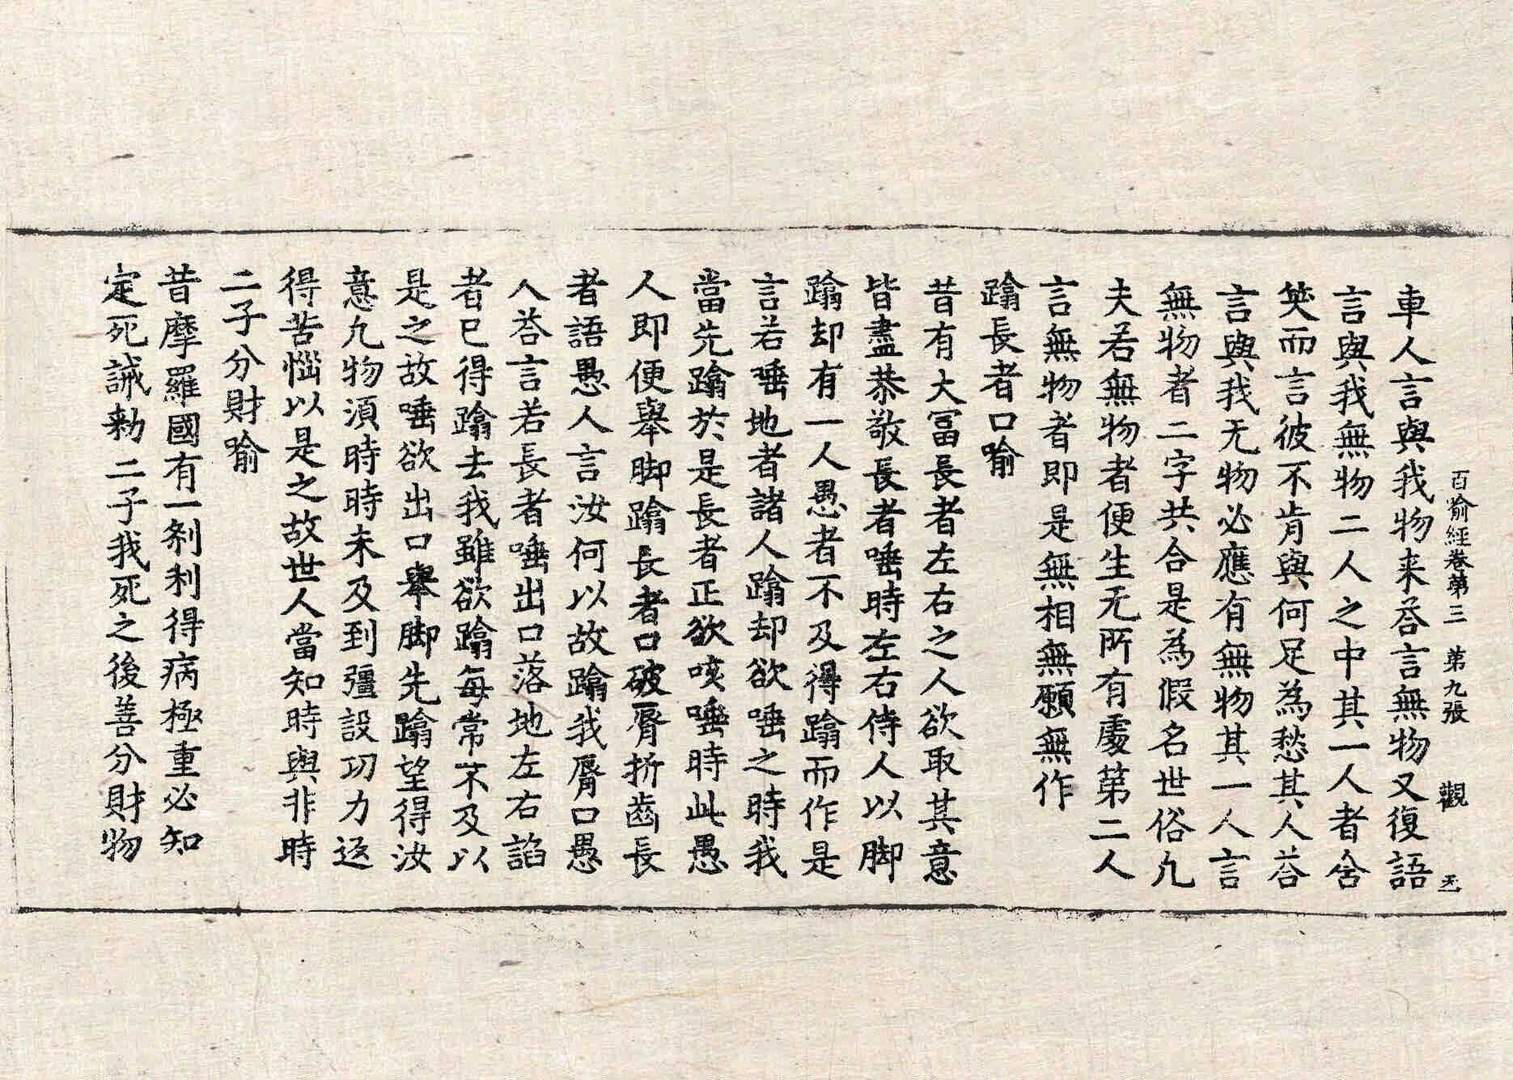 百喻經卷第三　第九張　觀
車人言與我物来荅言無物又復語
言與我無物二人之中其一人者含
笑而言彼不肯與何足為愁其人荅
言與我无物必應有無物其一人言
無物者二字共合是為假名世俗凢
夫若無物者便生无所有處第二人
言無物者即是無相無願無作
蹹長者口喻
昔有大冨長者左右之人欲取其意
皆盡恭敬長者唾時左右侍人以脚
蹹却有一人愚者不及得蹹而作是
言若唾地者諸人蹹却欲唾之時我
當先蹹於是長者正欲咳唾時此愚
人即便舉脚蹹長者口破脣折齒長
者語愚人言汝何以故蹹我脣口愚
人荅言若長者唾出口落地左右諂
者已得蹹去我雖欲蹹每常不及以
是之故唾欲出口舉脚先蹹望得汝
意凢物湏時時未及到彊設功力返
得苦惱以是之故世人當知時與非時
二子分財喻
昔摩羅國有一剎利得病極重必知
定死誡勅二子我死之後善分財物